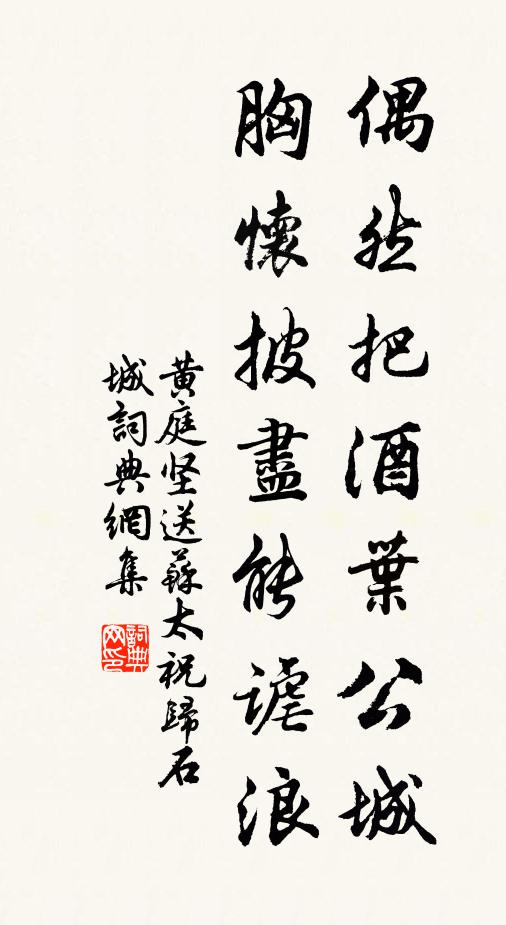 偶然把酒葉公城
胸懷披盡能謔浪
黄庭坚送蘇太祝歸石
城詞典網集
詞典
网印